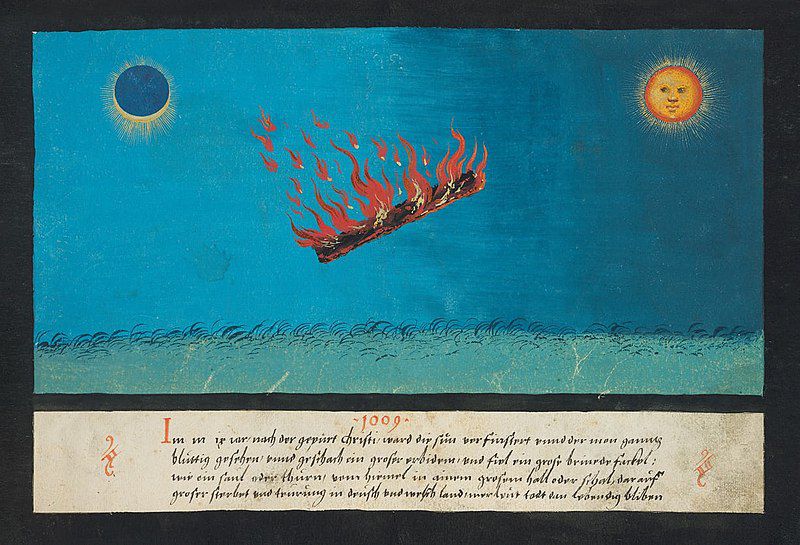 ·1009·
Im m ix iar nach der gepurt Christi ward die sun verfinstert unnd der mon ganntz
bluttig gesehen, unnd geschach ein groser erbidem, und fiel ein grose brinede fackel:
wie ein saul oder thurn, vom himel in ainem grosem hall oder schal, dar auf
groser sterbet und teurung in deusch und welsch land, mer leut todt dan lebendig bliben